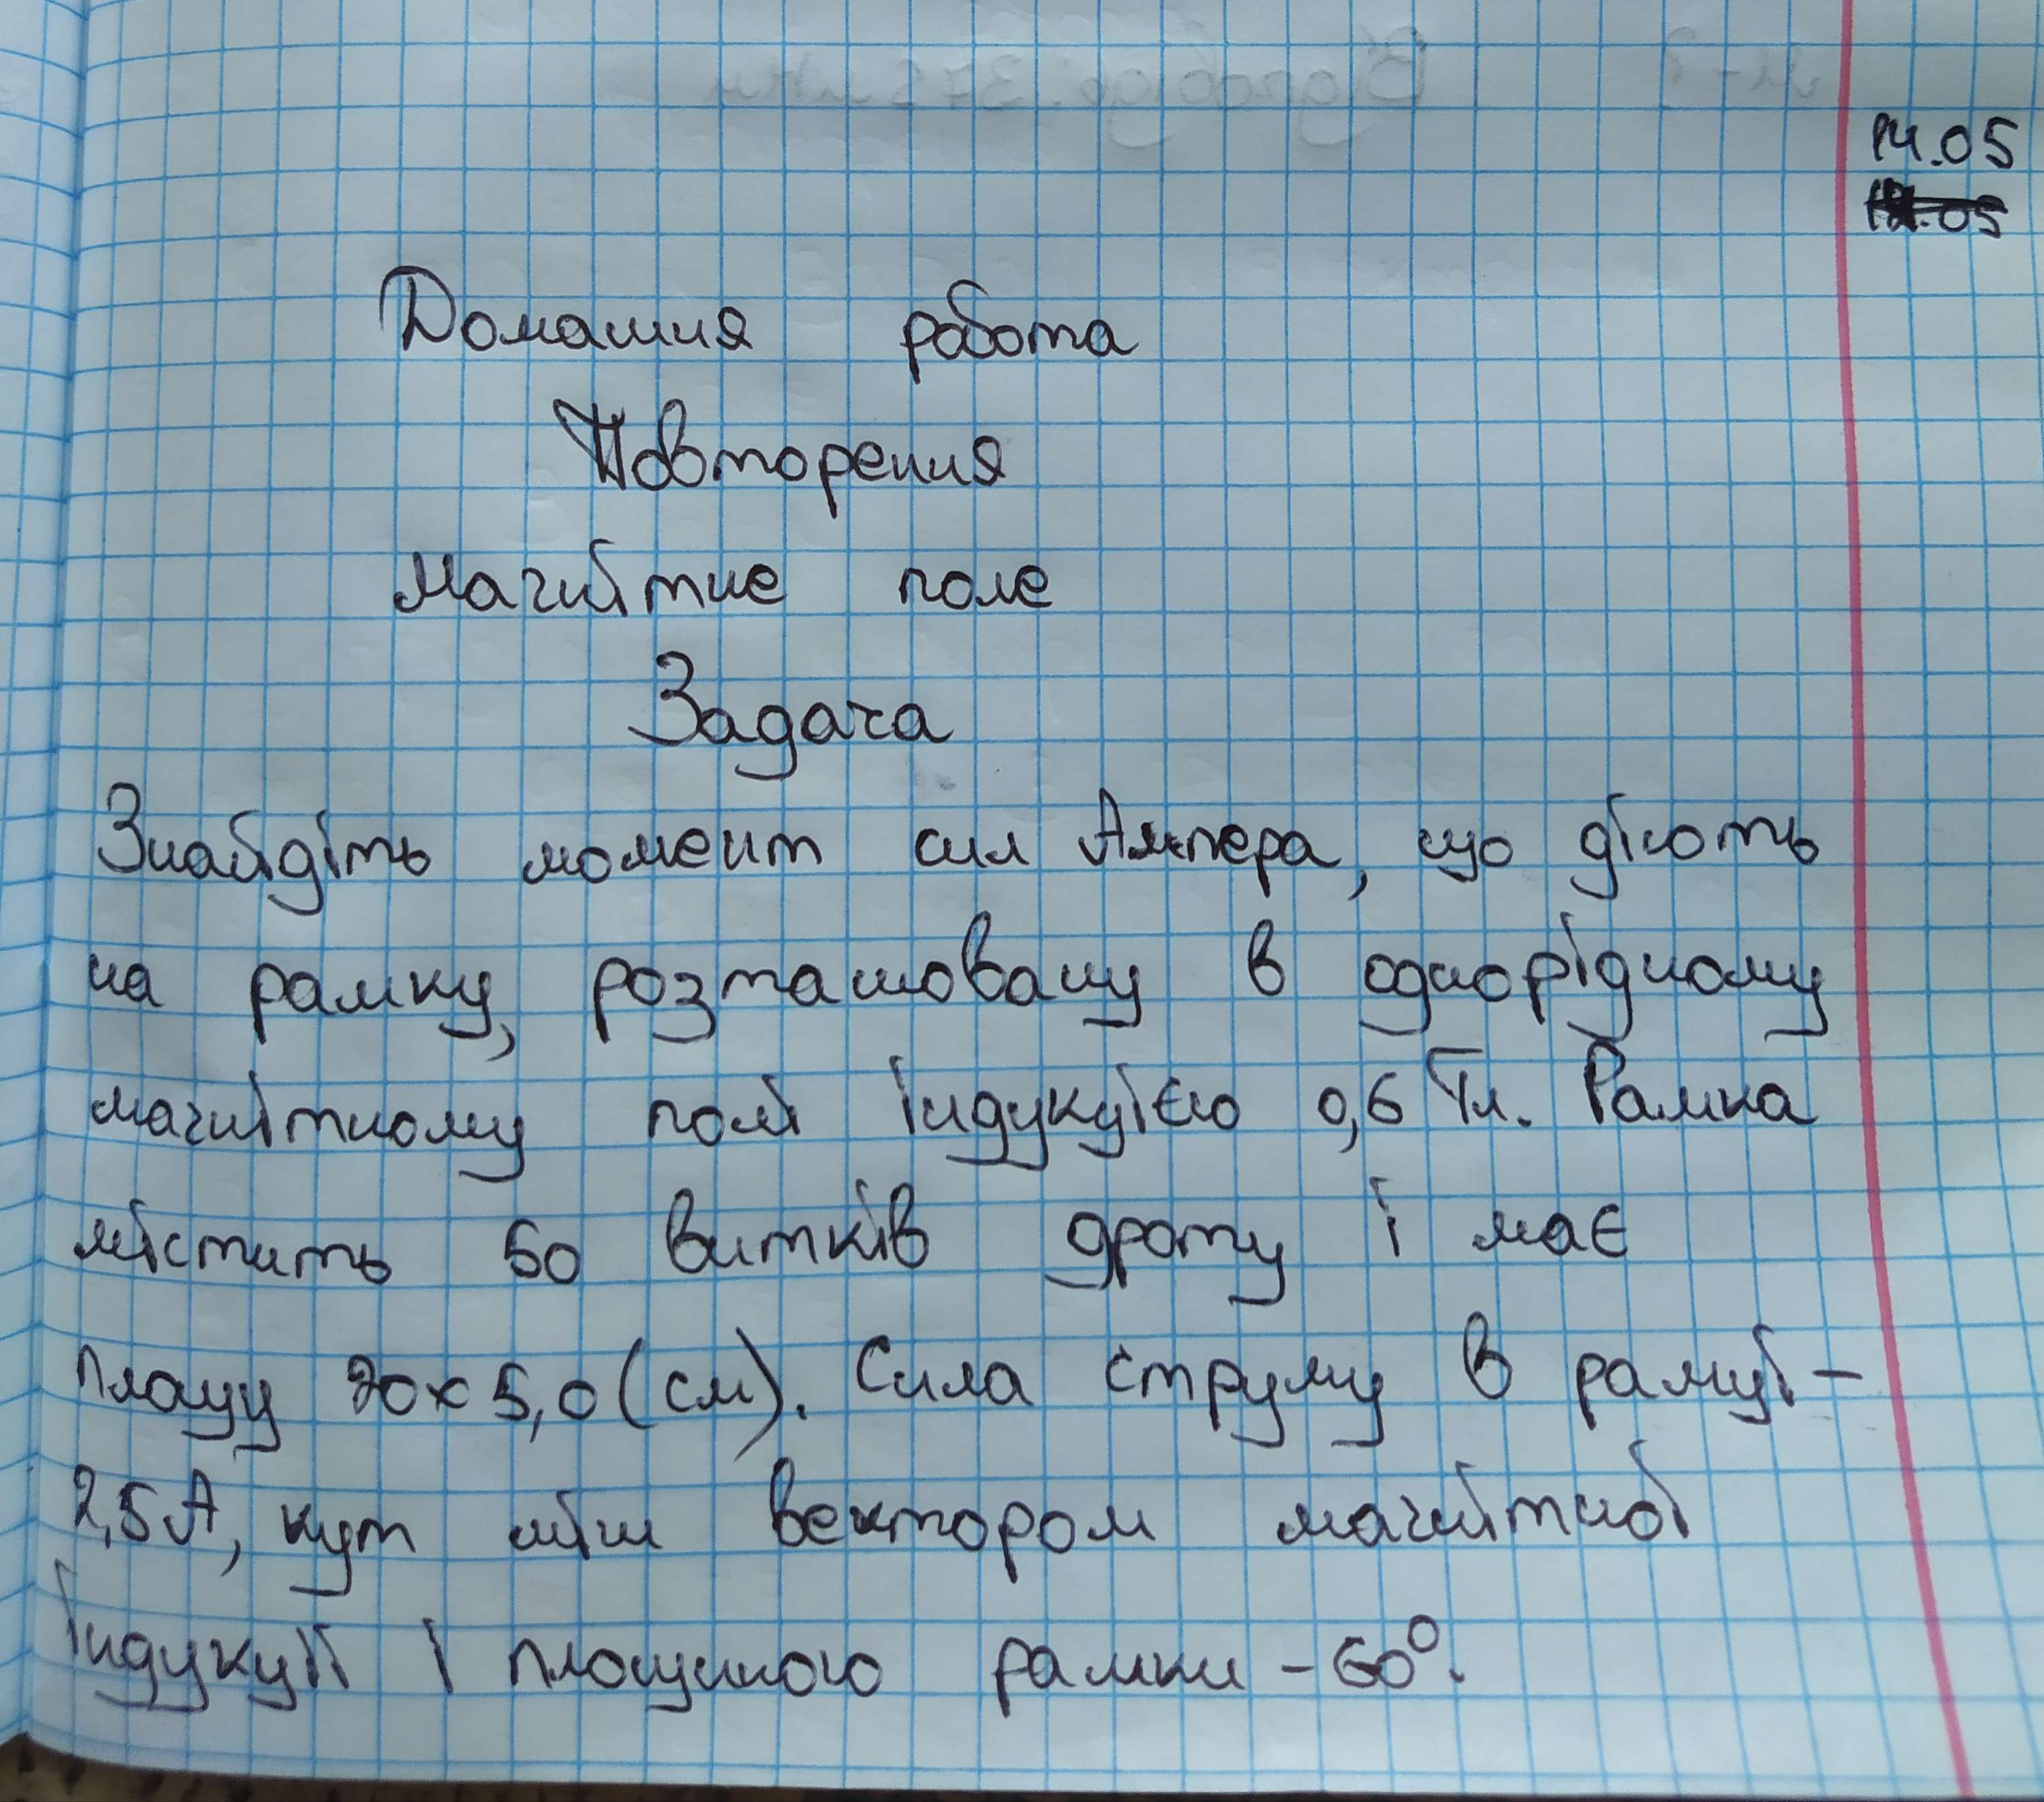 14.05
Домашня робота
Повторення
Магнітне поле
Задача
Знайдіть момент сил Ампера, що діють
на рамку, розташовану в однорідному
магнітному полі індукцією 0,6 Тл. Рамка
містить 50 витків дроту і має
площу 20х5,0 (см). Сила струму в рамці –
2,5 А, кут між вектором магнітної
індукції і площиною рамки – 60°.